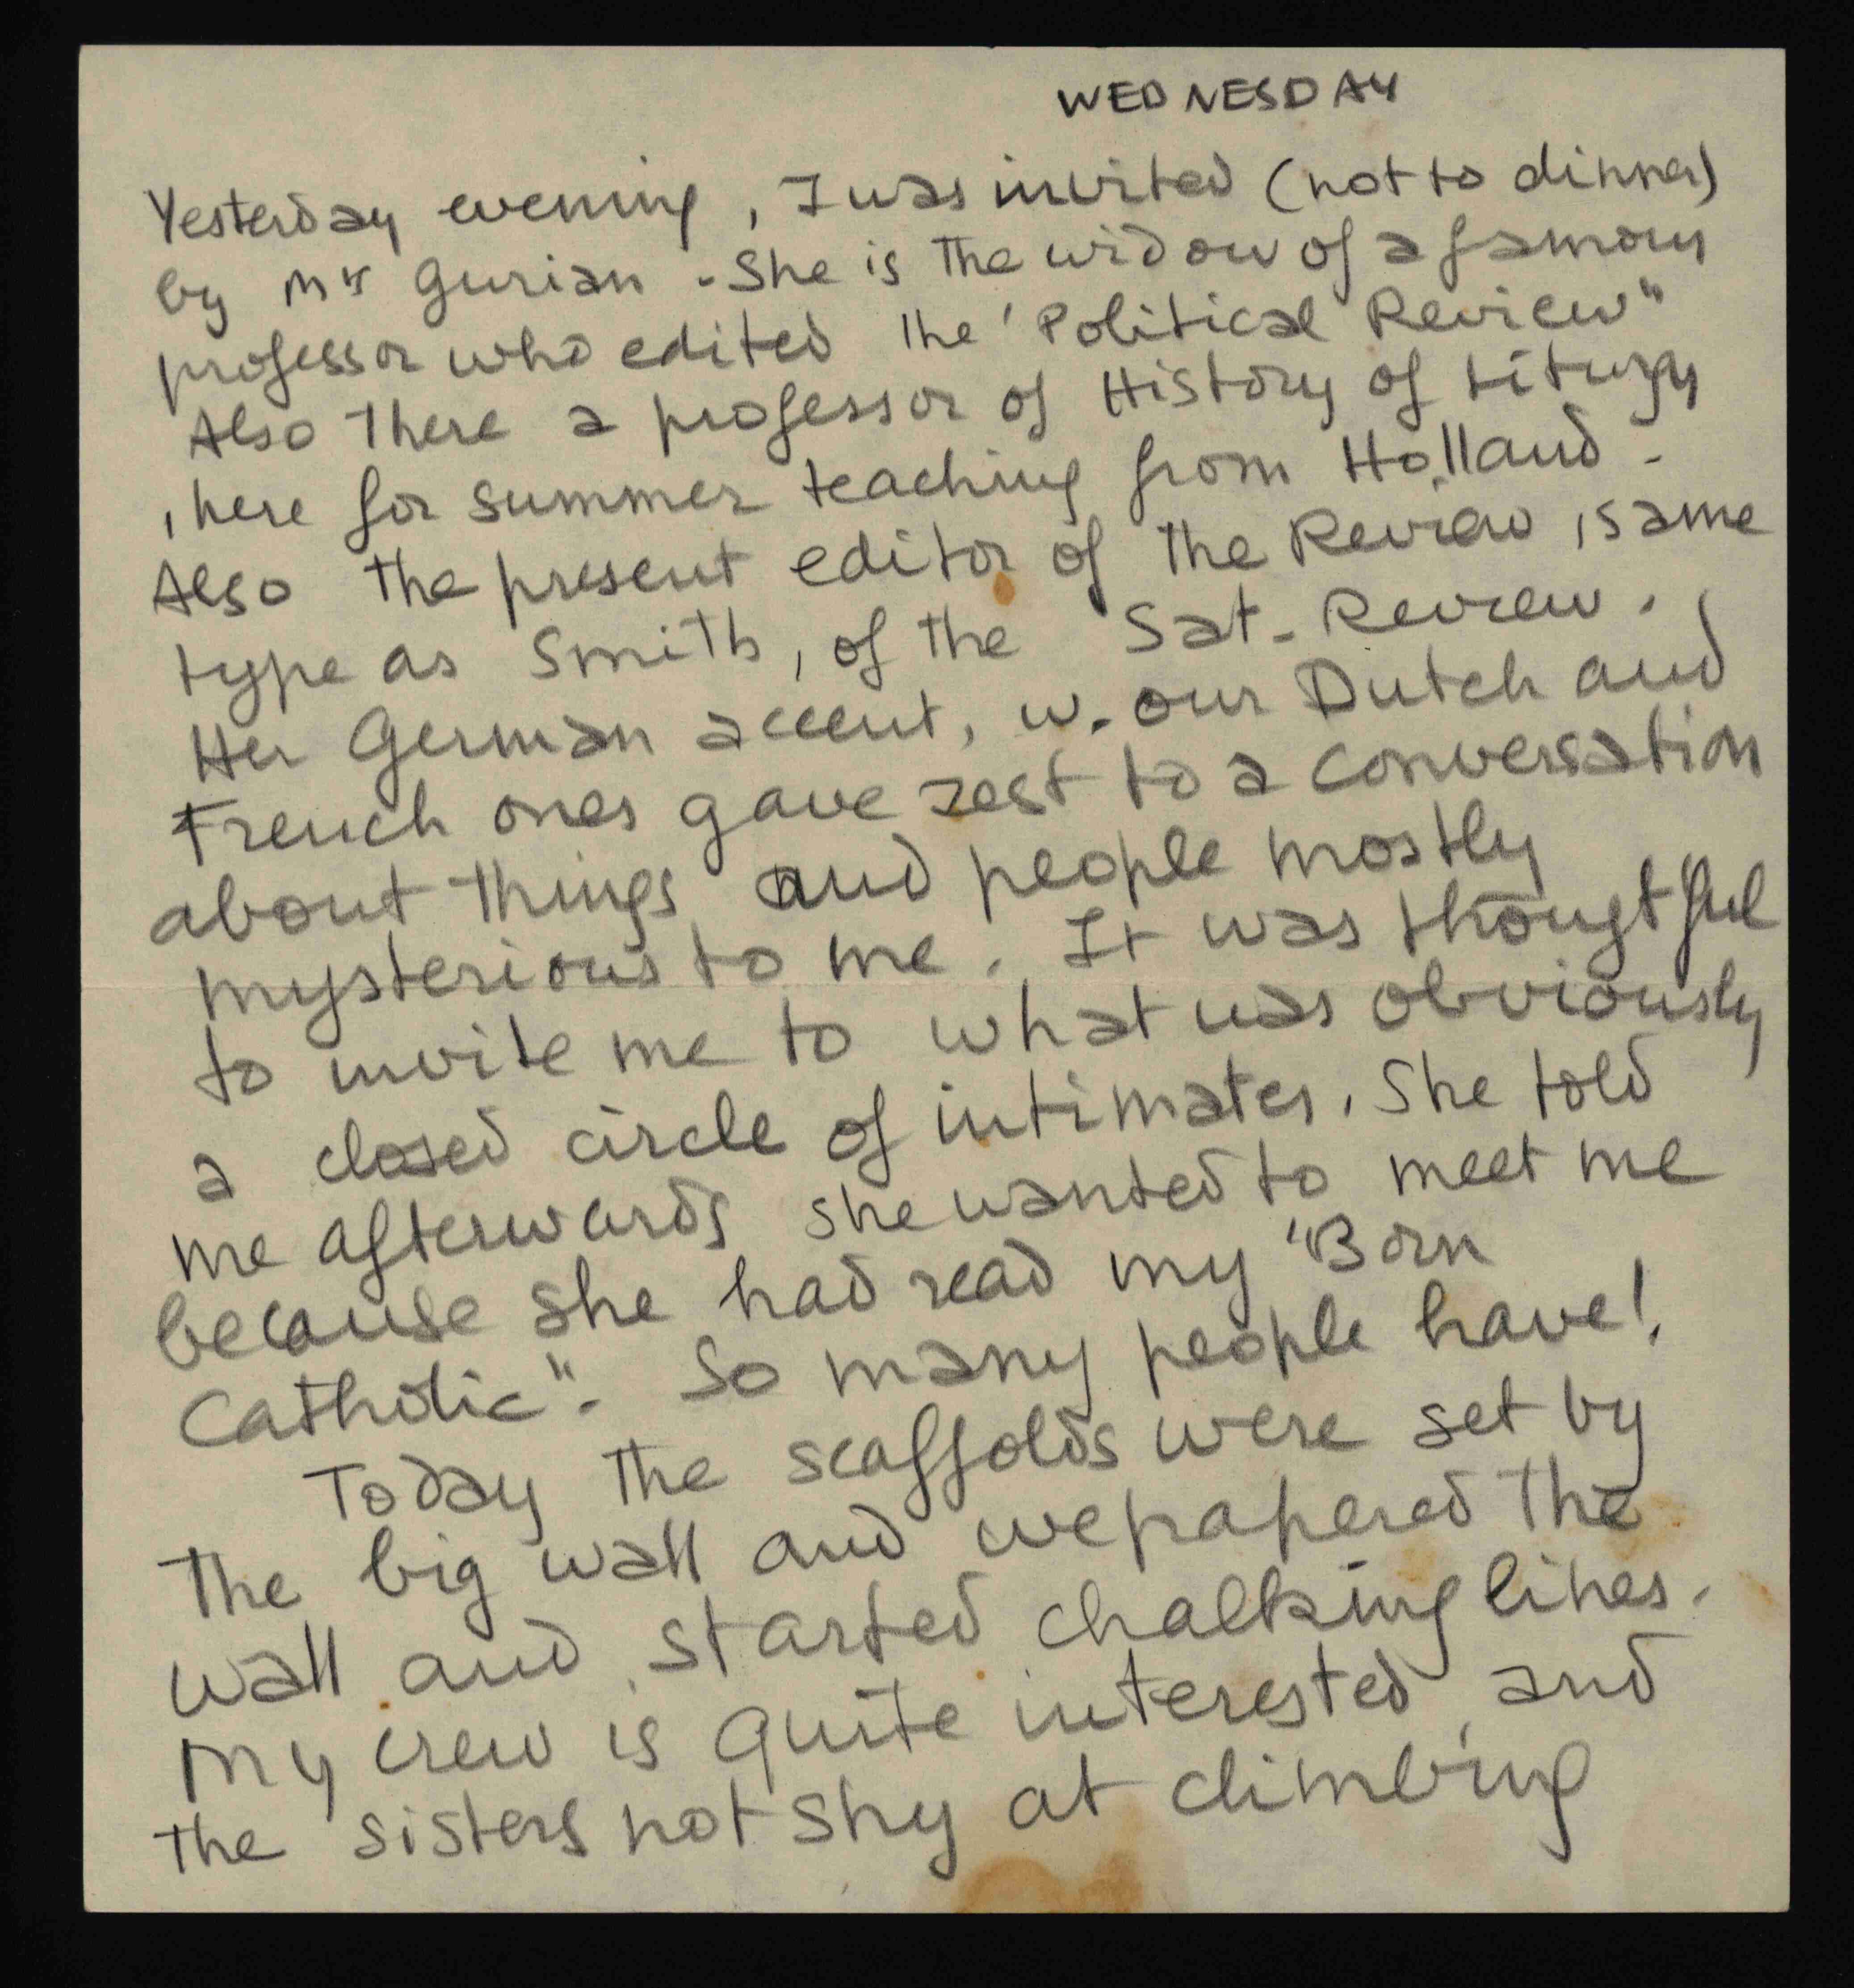 WEDNESDAY
Yesterday evening, I was invited (not to dinner)
by Mrs Gurian - She is the widow of a famous
professor who edited the 'Political Review"
Also there a professor of History of Liturgy
, here for summer teaching from Holland -
Also the present editor of the Review, same
type as Smith, of the Sat. Review.
Her German accent, w. our Dutch and
French ones gave zest to a conversation
about things and people mostly
mysterious to me. It was thougtful
to invite me to what was obviously
a closed circle of intimates. She told
me afterwards she wanted to meet me
because she had read my "Born
Catholic". So many people have!
Today the scaffolds were set by
the big wall and we papered the
wall and started chalking lines.
My crew is quite interested, and
the sisters not shy at climbing